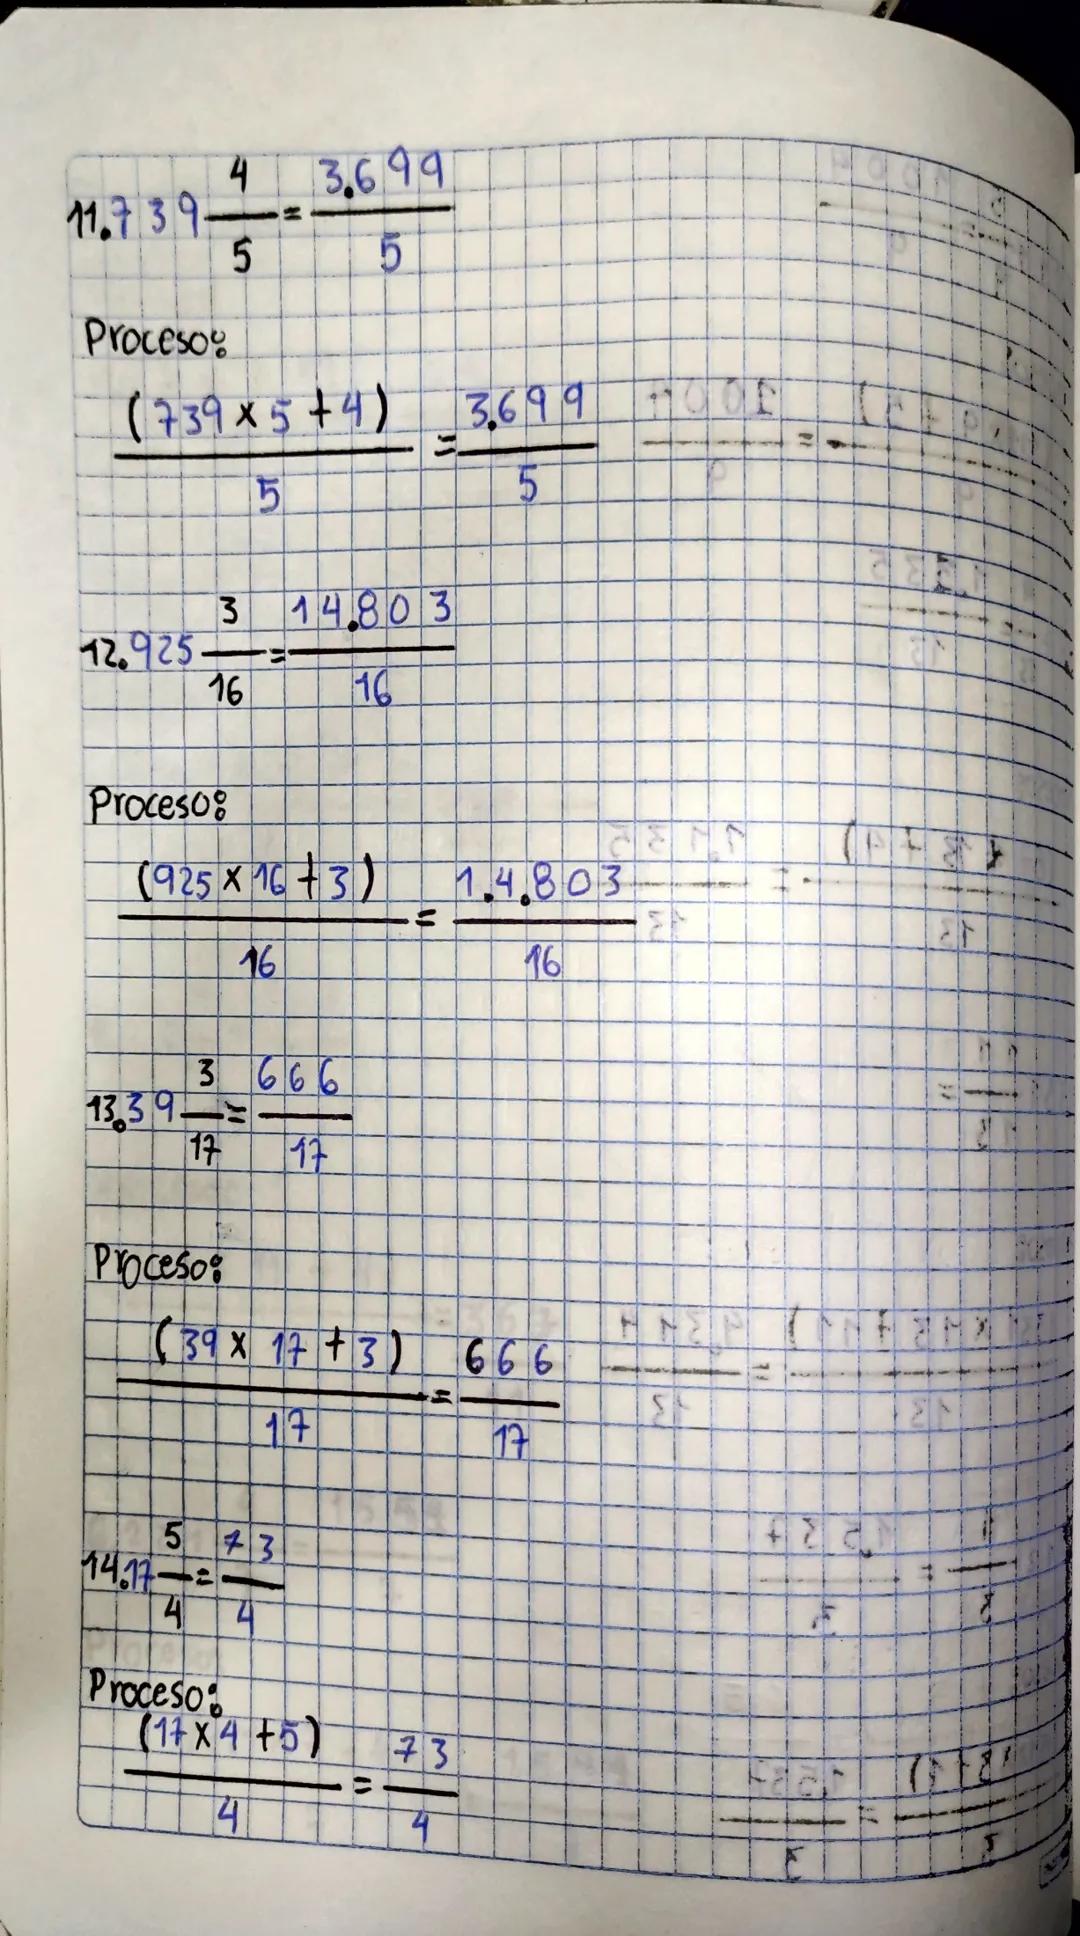 11. 739 4/5 = 3.699/5
Proceso:
(739 x 5 + 4)/5 = 3.699/5
12. 925 3/16 = 14.803/16
Proceso:
(925 x 16 + 3)/16 = 1.4.803/16
13. 39 3/17 = 666/17
Proceso:
(39 x 17 + 3)/17 = 666/17
14. 17 5/4 = 73/4
Proceso:
(17 x 4 + 5)/4 = 73/4